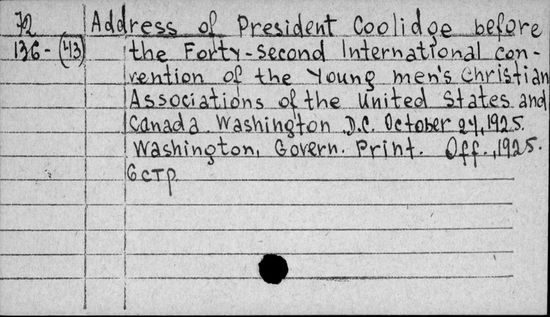 72 Address of President Coolidge before
136-(43) the Forty-Second International con-
vention of the Young men's Christian
Associations of the United States and
Canada Washington D.C. October 24, 1925.
Washington, Govern. Print. Off., 1925.
6 стр.